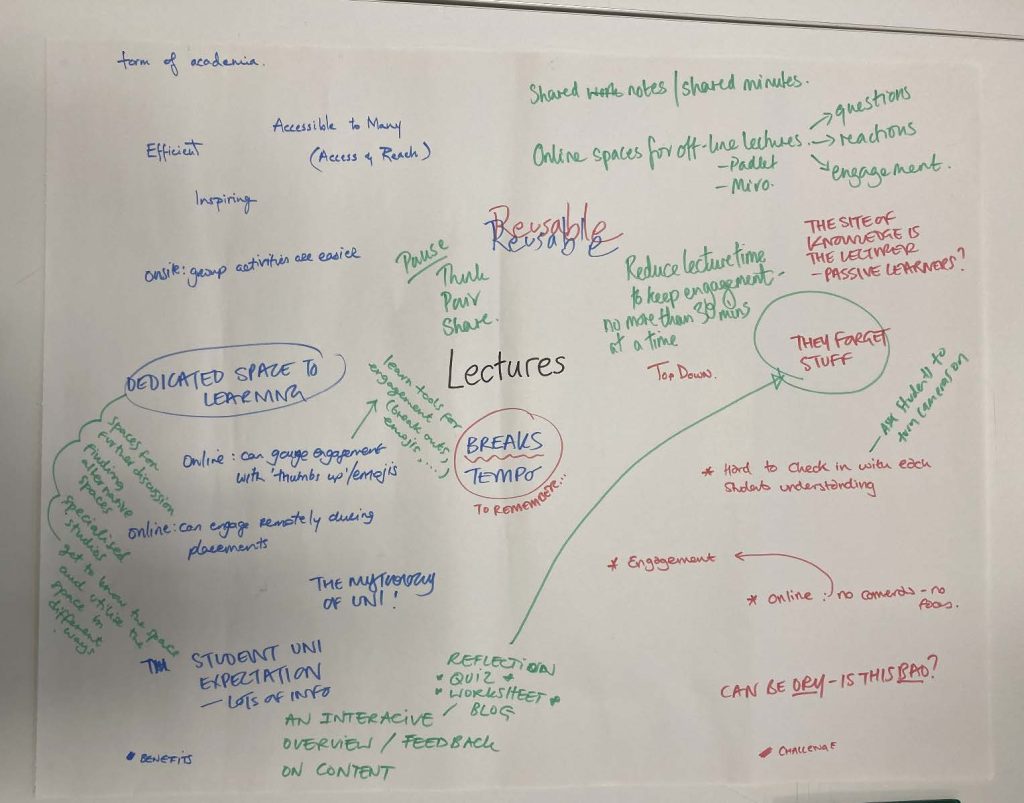 form of academia.
Efficient
Accessible to Many
(Access & Reach)
Inspiring
onsite: group activities are easier
Shared work notes / shared minutes.
Online spaces for off-line lectures.
- Padlet
- Miro.
questions
reactions
engagement.
Reusable
Reusable
Pause
Think
Pair
Share.
Reduce lecture time
to keep engagement -
no more than 30 mins
at a time
THE SITE OF
KNOWLEDGE IS
THE LECTURER
- PASSIVE LEARNERS?
THEY FORGET
STUFF
TOP DOWN.
Lectures
DEDICATED SPACE TO
LEARNING
learn tools for
engagement
(break outs,
emojis, ...)
BREAKS
TEMPO
TO REMEMBER...
Ask students to
turn cameras on
Online: can gauge engagement
with 'thumbs up'/emojis
online: can engage remotely during
placements
spaces for
further discussion
Finding
alternative
spaces
specialised
studios
get to know the space
and utilise the
space in
different
ways
* Hard to check in with each
students understanding
* Engagement
* Online : no cameras - no
focus.
THE MYTHOLOGY
OF UNI!
STUDENT UNI
EXPECTATION
- LOTS OF INFO
REFLECTION
* QUIZ *
* WORKSHEET *
/ BLOG
AN INTERACIVE
OVERVIEW / FEEDBACK
ON CONTENT
CAN BE DRY - IS THIS BAD?
BENEFITS
CHALLENGE